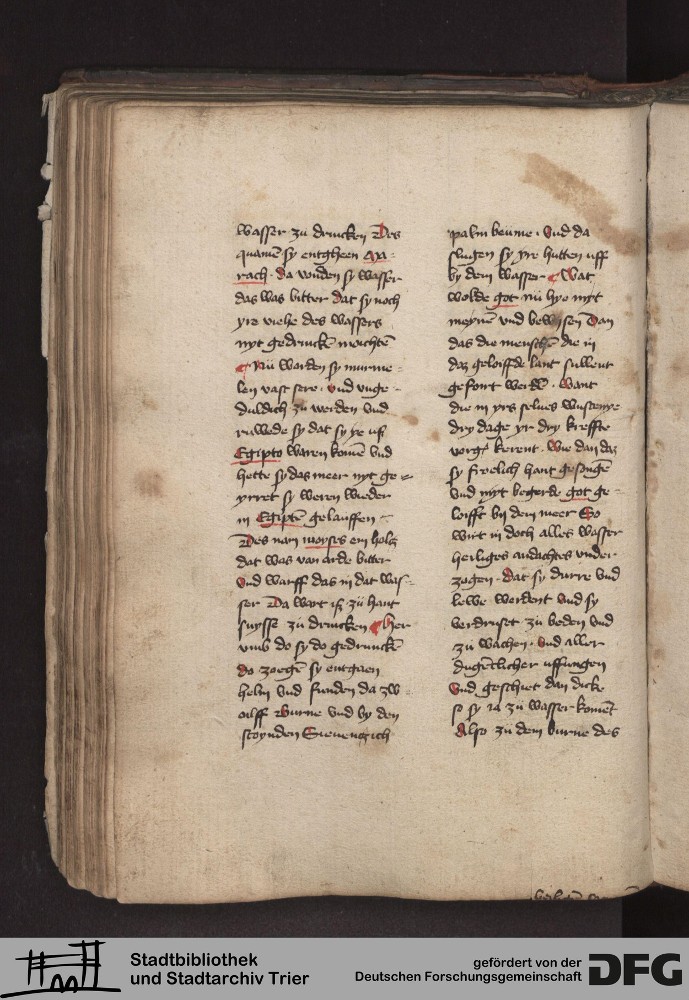 wasser zu drincken Des
quamē sy entgheen Ma-
rach. da vonden sy wasser
das was bitter dat sy noch
yre viehe des wassers
nyt gedrinckē moichtē
Nu worden sy murme-
len vast sere. vnd vnge-
duldich zu werden vnd
ruwede sy dat sy ye uſ
Egipto waren komē vnd
hette sy das meer nyt ge-
yrret sy weren wieder
in Egiptē gelauffen
Des nam moyses ein holtz
dat was van arde bitter
vnd warff das in dat was-
ser Da wart iſ zu hant
suysse zu drincken Her
vmb do sy do gedrunckē
do zoegē sy entgaen
helim vnd funden da zw-
oilff burne vnd by den
stoynden Sieuentzich
palm beume. vnd da
slugen sy yre hutten uff
by dem wasser Wat
wolde got nu hye myt
meynē vnd bewysen Dan
das die menschē die in
daz geloiffde lant sullent
gefoirt werdē. Want
die in yrs selues wustenye
dry dage yr dry kreffte
kerent. Wie dan daz
sy froelich hant gesongē
vnd myt begerde got ge-
loifft by dem meer So
wirt in doch alles wasser
heiliges andachtes vnder-
zogen. Dat sy durre vnd
lewe werdent vnd sy
verdruset zu beden vnd
zu wachen. vnd aller
dugētlicher uffungen
Vnd geschiet dan dicke
so sy za zu wasser koment
Also zu dem burne des
Stadtbibliothek
und Stadtarchiv Trier
gefördert von der
Deutschen Forschungsgemeinschaft
DFG